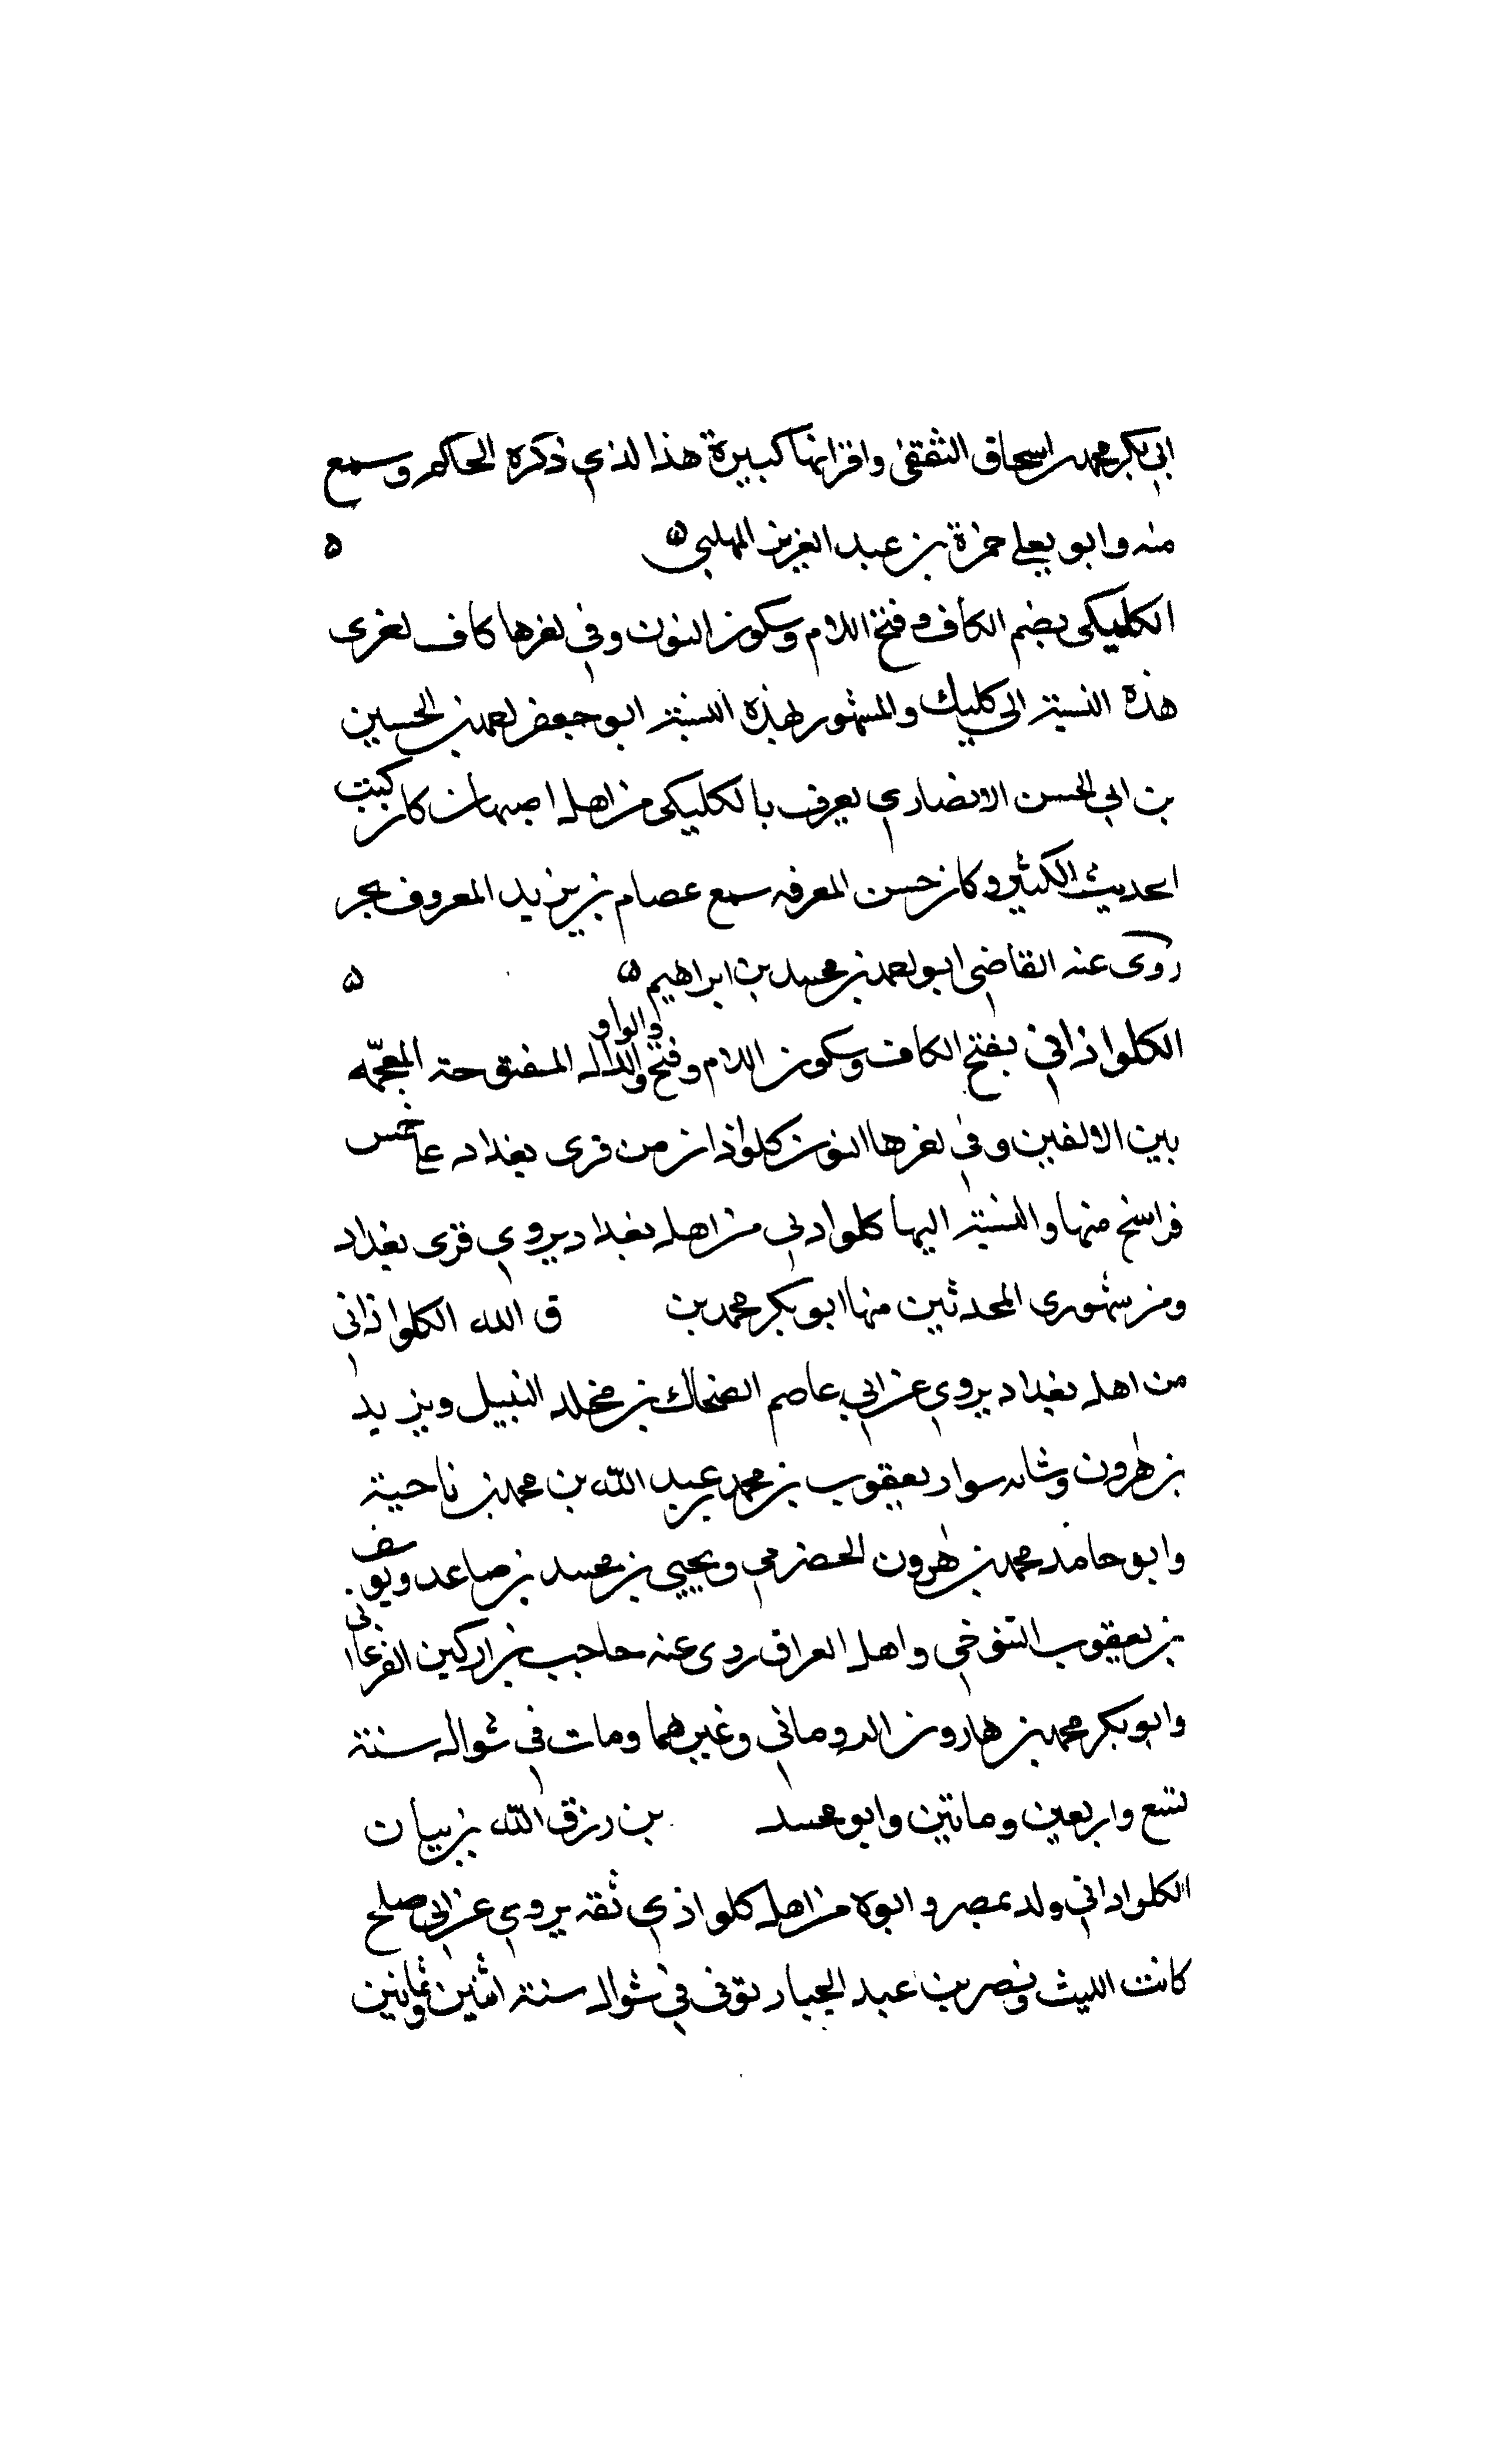 ابي بكر محمد بن اسحاق الثقفي واقرانهما كبيرة هذا الذي ذكره الحاكم وسمع
منه وابو يعلى حمزة بن عبد العزيز المهلبي ه ه
الكليكي بضم الكاف وفتح اللام وسكون النون وفي اخرها كاف اخرى
هذه النسبة الى كليك والمشهور بهذه النسبة ابو جعفر احمد بن الحسين
بن ابي الحسن الانصاري يعرف بالكليكي من اهل اصبهان كان كتب
الحديث الكثير وكان حسن المعرفه سمع عصام بن يزيد المعروف بجبر
روى عنه القاضي ابو احمد بن محمد بن ابراهيم ه ه
الكلواذاني بفتح الكاف وسكون اللام وفتح والواو والذال المفتوحة المعجمه
بين الالفين وفي اخرها النون كلواذان من قرى بغداد على خمس
فراسخ منها والنسبة اليها كلوادني من اهل بغداد يروي قرى بغداد
ومن مشهوري المحدثين منها ابو بكر محمد بن ق الله الكلواذاني
من اهل بغداد يروي عن ابي عاصم الضحاك بن مخلد النبيل ويزيد
بن هرون وشابه سوار يعقوب بن محمد عبد الله بن محمد بن ناحية
وابو حامد محمد بن هرون الحضرمي ويحيى بن محمد بن صاعد ويوسف
بن يعقوب التنوخي واهل العراق روى عنه حاجب بن اركين الفرغاني
وابو بكر محمد بن هارون الروماني وغيرهما ومات في شوال سنة
تسع واربعين وماتين وابو محمد بن رزق الله بن بيان
الكلواداني ولد بمصر وابوه من اهل كلواذي ثقه يروي عن ابي صلح
كاتب الليث ونصر بن عبد الجبار توفى في شوال سنة اثنين وثمانين